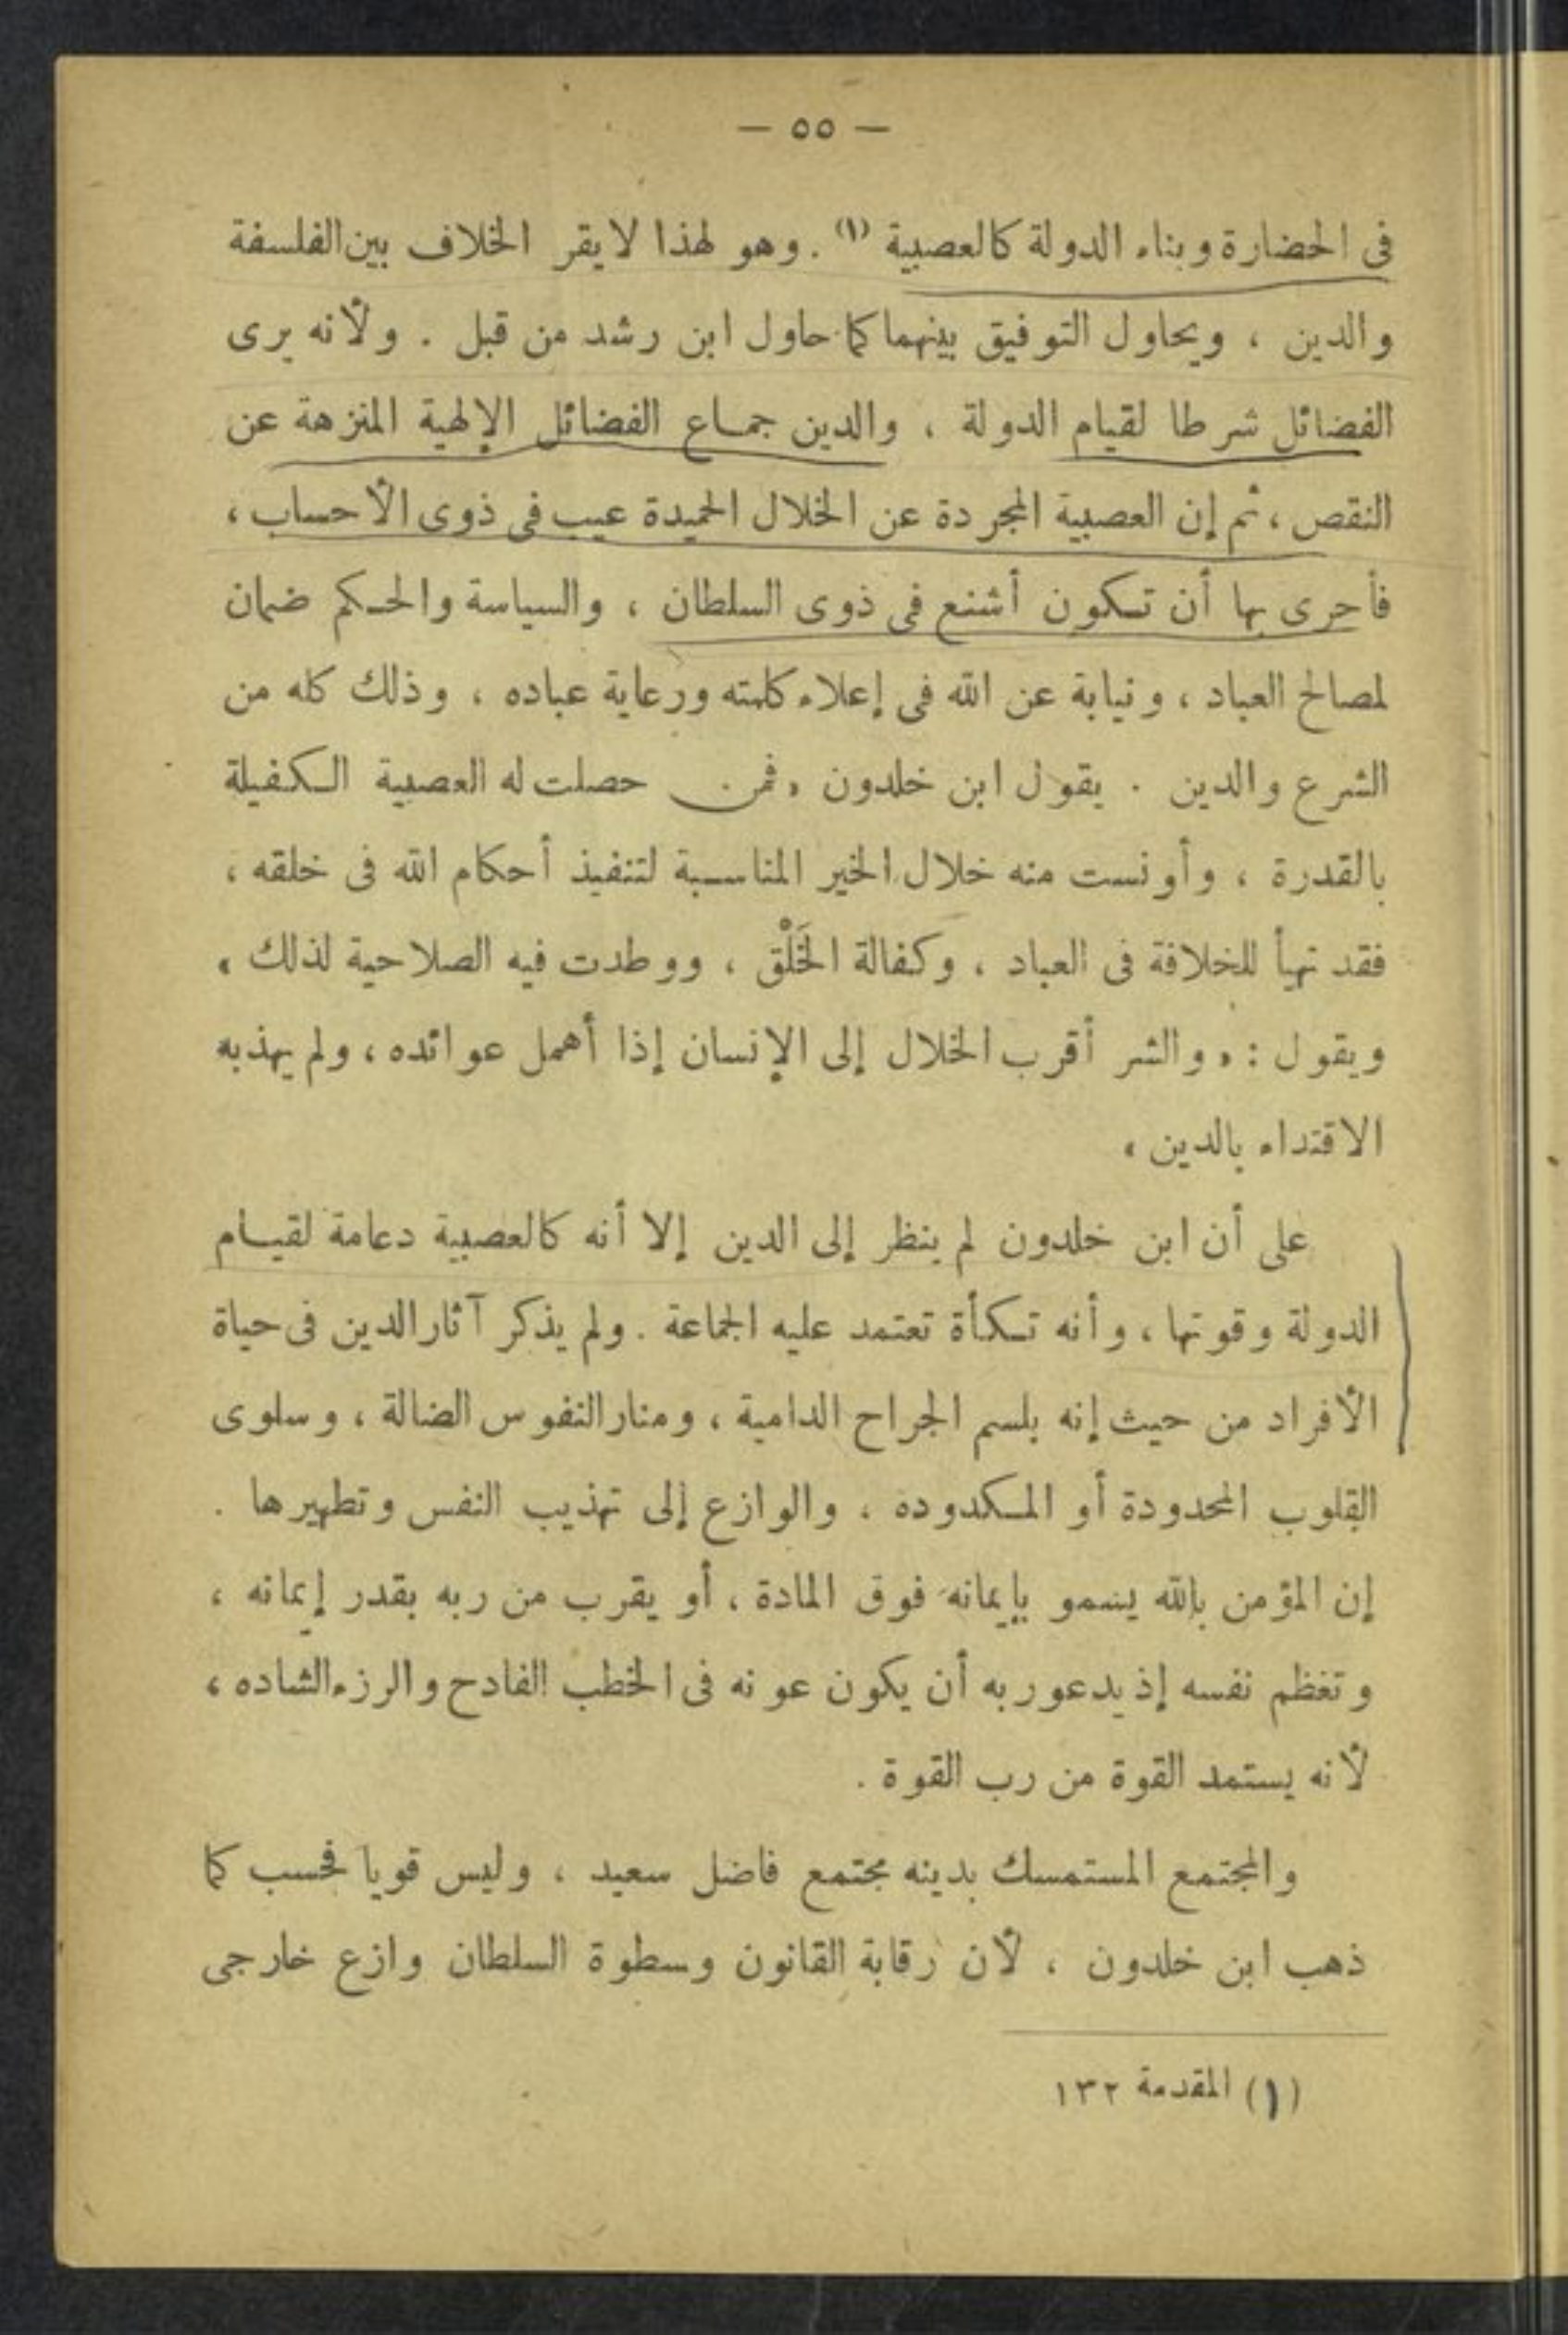 — ٥٥ —
فى الحضارة وبناء الدولة كالعصبية (١) . وهو لهذا لا يقر الخلاف بين الفلسفة
والدين ، ويحاول التوفيق بينهما كما حاول ابن رشد من قبل . ولأنه يرى
الفضائل شرطا لقيام الدولة ، والدين جماع الفضائل الإلهية المنزهة عن
النقص ، ثم إن العصبية المجردة عن الخلال الحميدة عيب فى ذوى الأحساب ،
فأحرى بها أن تكون أشنع فى ذوى السلطان ، والسياسة والحكم ضمان
لمصالح العباد ، ونيابة عن الله فى إعلاء كلمته ورعاية عباده ، وذلك كله من
الشرع والدين . يقول ابن خلدون « فمن حصلت له العصبية الكفيلة
بالقدرة ، وأونست منه خلال الخير المناسبة لتنفيذ أحكام الله فى خلقه ،
فقد تهيأ للخلافة فى العباد ، وكفالة الخَلْق ، ووطدت فيه الصلاحية لذلك »
ويقول : « والشر أقرب الخلال إلى الإنسان إذا أهمل عوائده ، ولم يهذبه
الاقتداء بالدين »
على أن ابن خلدون لم ينظر إلى الدين إلا أنه كالعصبية دعامة لقيام
الدولة وقوتها ، وأنه تكأة تعتمد عليه الجماعة . ولم يذكر آثار الدين فى حياة
الأفراد من حيث إنه بلسم الجراح الدامية ، ومنار النفوس الضالة ، وسلوى
القلوب المحدودة أو المكدوده ، والوازع إلى تهذيب النفس وتطهيرها .
إن المؤمن بالله يسمو بإيمانه فوق المادة ، أو يقرب من ربه بقدر إيمانه ،
وتغظم نفسه إذ يدعو ربه أن يكون عونه فى الخطب الفادح والرزء الشاده ،
لأنه يستمد القوة من رب القوة .
والمجتمع المستمسك بدينه مجتمع فاضل سعيد ، وليس قويا فحسب كما
ذهب ابن خلدون ، لأن رقابة القانون وسطوة السلطان وازع خارجى
(١) المقدمة ١٣٢